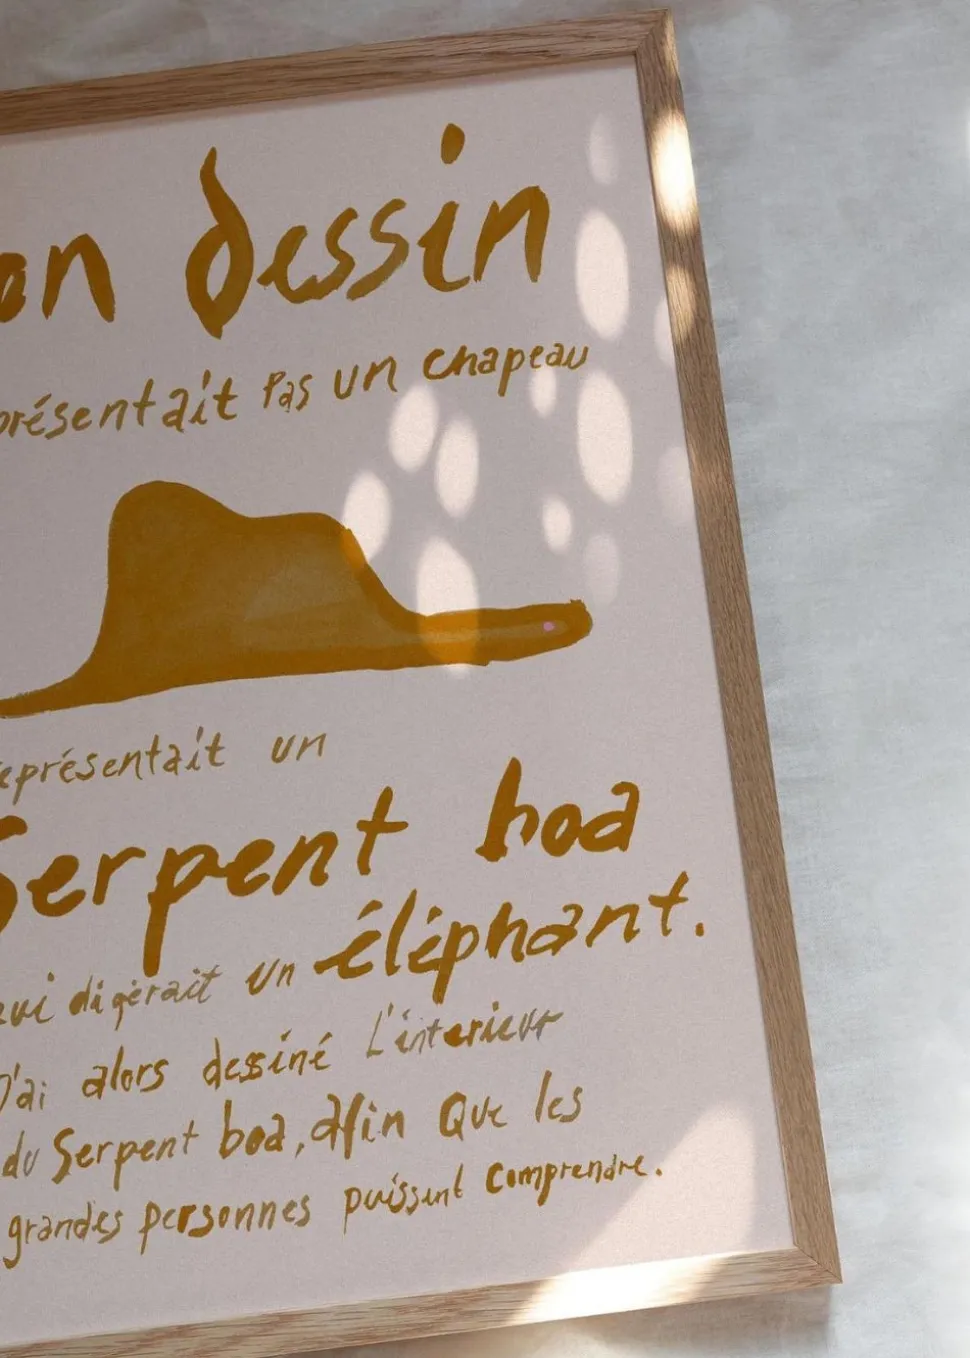 on dessin
présentait Pas un chapeau
eprésentait un
Serpent boa
qui digérait un éléphant.
J'ai alors dessiné L'interieur
du Serpent boa, afin Que les
grandes personnes puissent Comprendre.